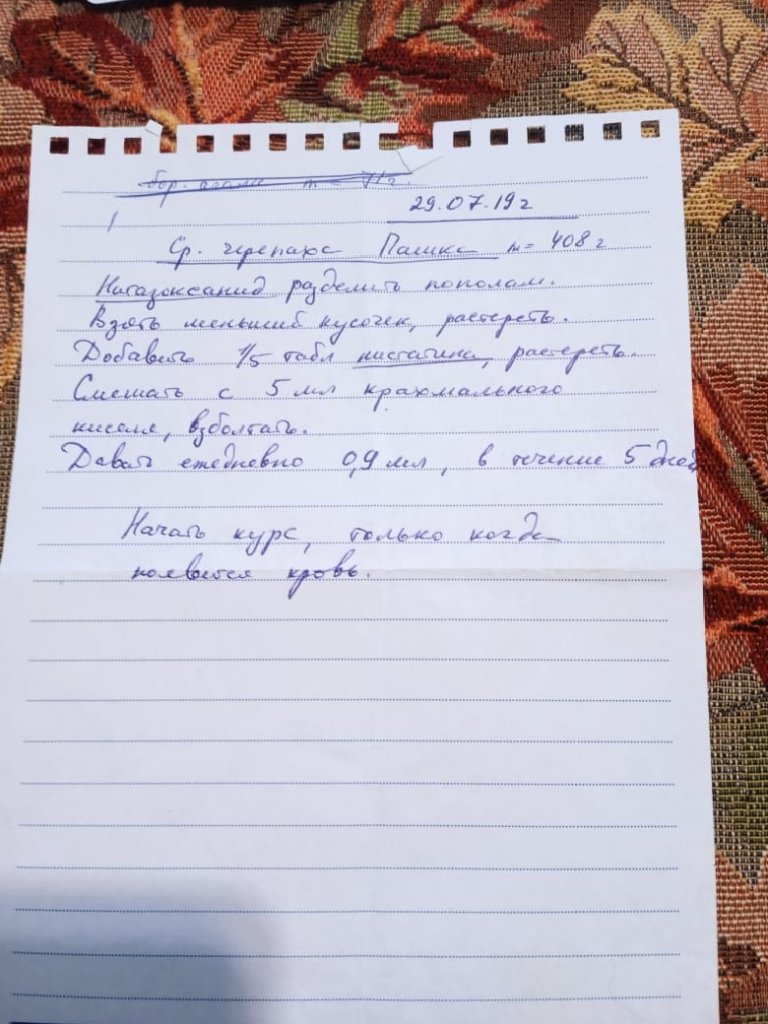 бор. агами m = 71 г.
29.07.19 г
Ср. черепаха Пашка m = 408 г
Нитазоксанид разделить пополам.
Взять меньший кусочек, растереть.
Добавить 1/5 табл нистатина, растереть.
Смешать с 5 мл крахмального
киселя, взболтать.
Давать ежедневно 0,9 мл, в течение 5 дней
Начать курс, только когда
появится кровь.